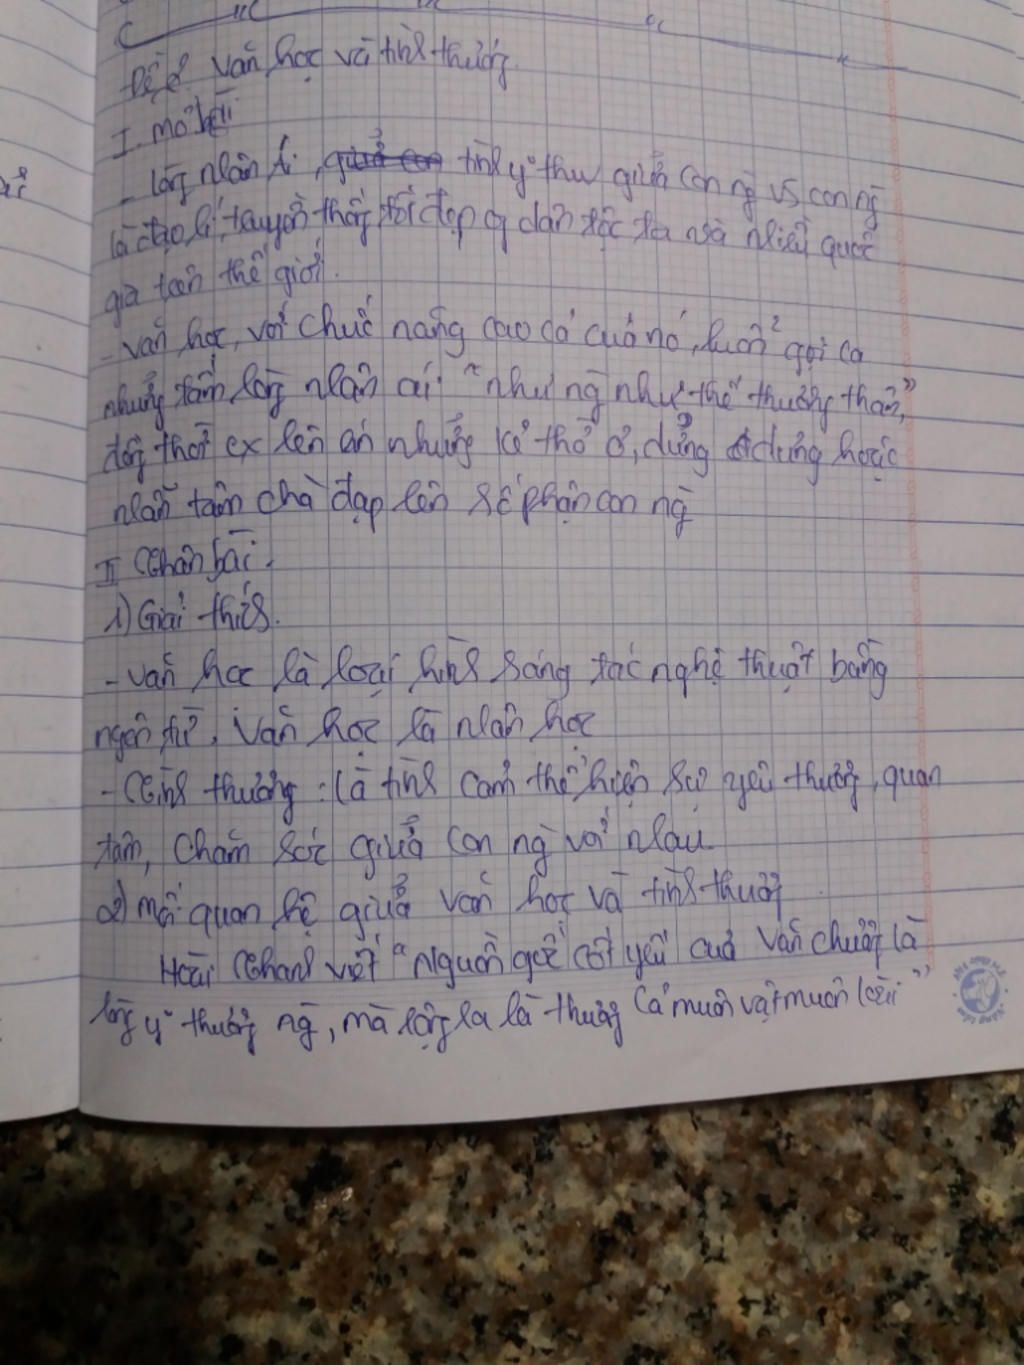 Đề 2 Văn học và tình thương
I. mở bài
- lòng nhân ái, tình y thw giữa con ng vs con ng
là đạo lí, truyền thống tốt đẹp of dân tộc ta và nhiều quốc
gia trên thế giới.
- Văn học, với chức năng cao cả của nó, luôn gợi ca
những tấm lòng nhân ái "như ng như thể thương thân,"
đồng thời ex lên án những kẻ thờ ơ, dửng dưng hoặc
nhẫn tâm chà đạp lên số phận con ng
II Thân bài.
1) Giải thích.
- Văn học là loại hình sáng tác nghệ thuật bằng
ngôn từ, Văn học là nhân học
- Tình thương : là tình cảm thể hiện sự yêu thương, quan
tâm, chăm sóc giữa con ng với nhau
2) mối quan hệ giữa văn học và tình thương
Hoài Thanh viết "Nguồn gốc cốt yếu của văn chương là
lòng y thương ng, mà rộng ra là thương cả muôn vật muôn loài"